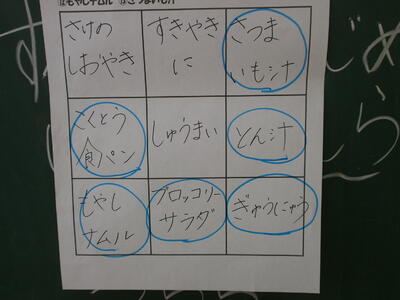 ⑫もやしナムル ⑬さつまいも汁
さけの
しおやき
すきやき
に
さつま
いも汁
さくとう
食パン
しゅうまい
とん汁
もやし
ナムル
ブロッコリー
サラダ
ぎゅうにゅう